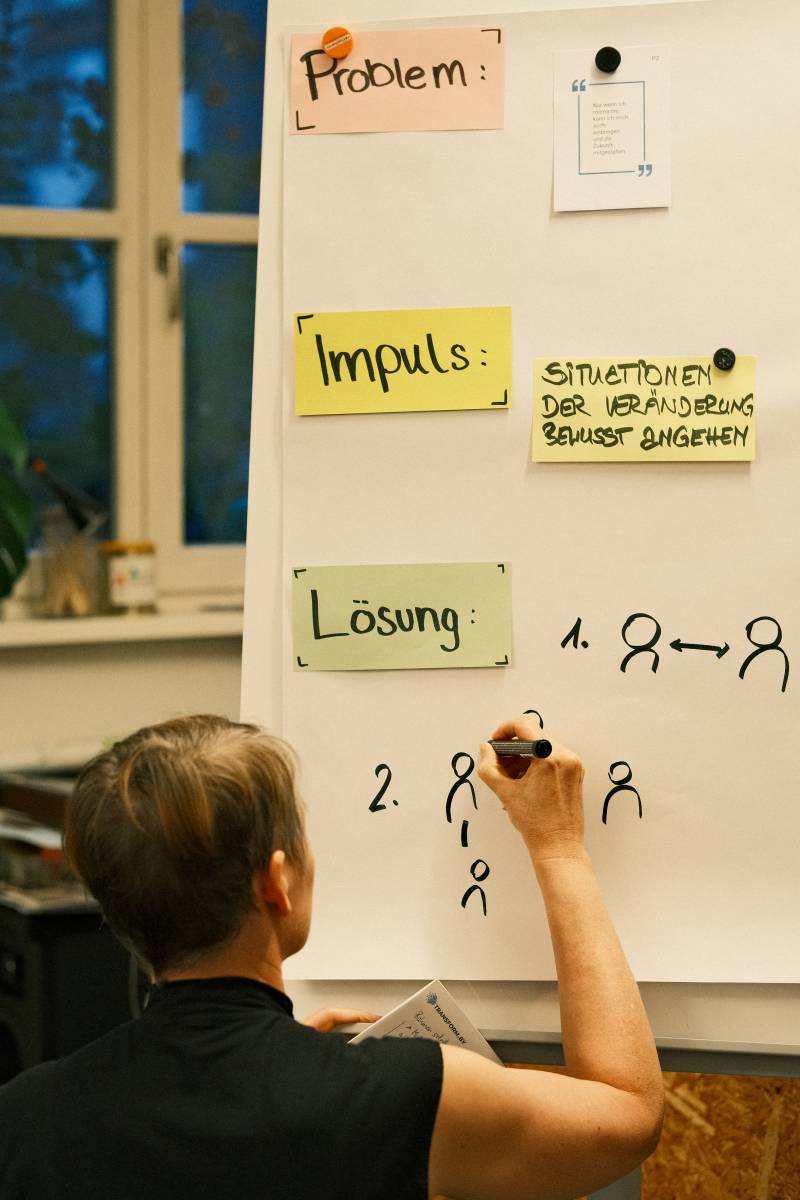 Problem:
P2
Nur wenn ich
mitmache,
kann ich mich
auch
einbringen
und die
Zukunft
mitgestalten.
Impuls:
SITUATIONEN
DER VERÄNDERUNG
BEWUSST ANGEHEN
Lösung:
1.
2.
TRANSFORM.BY